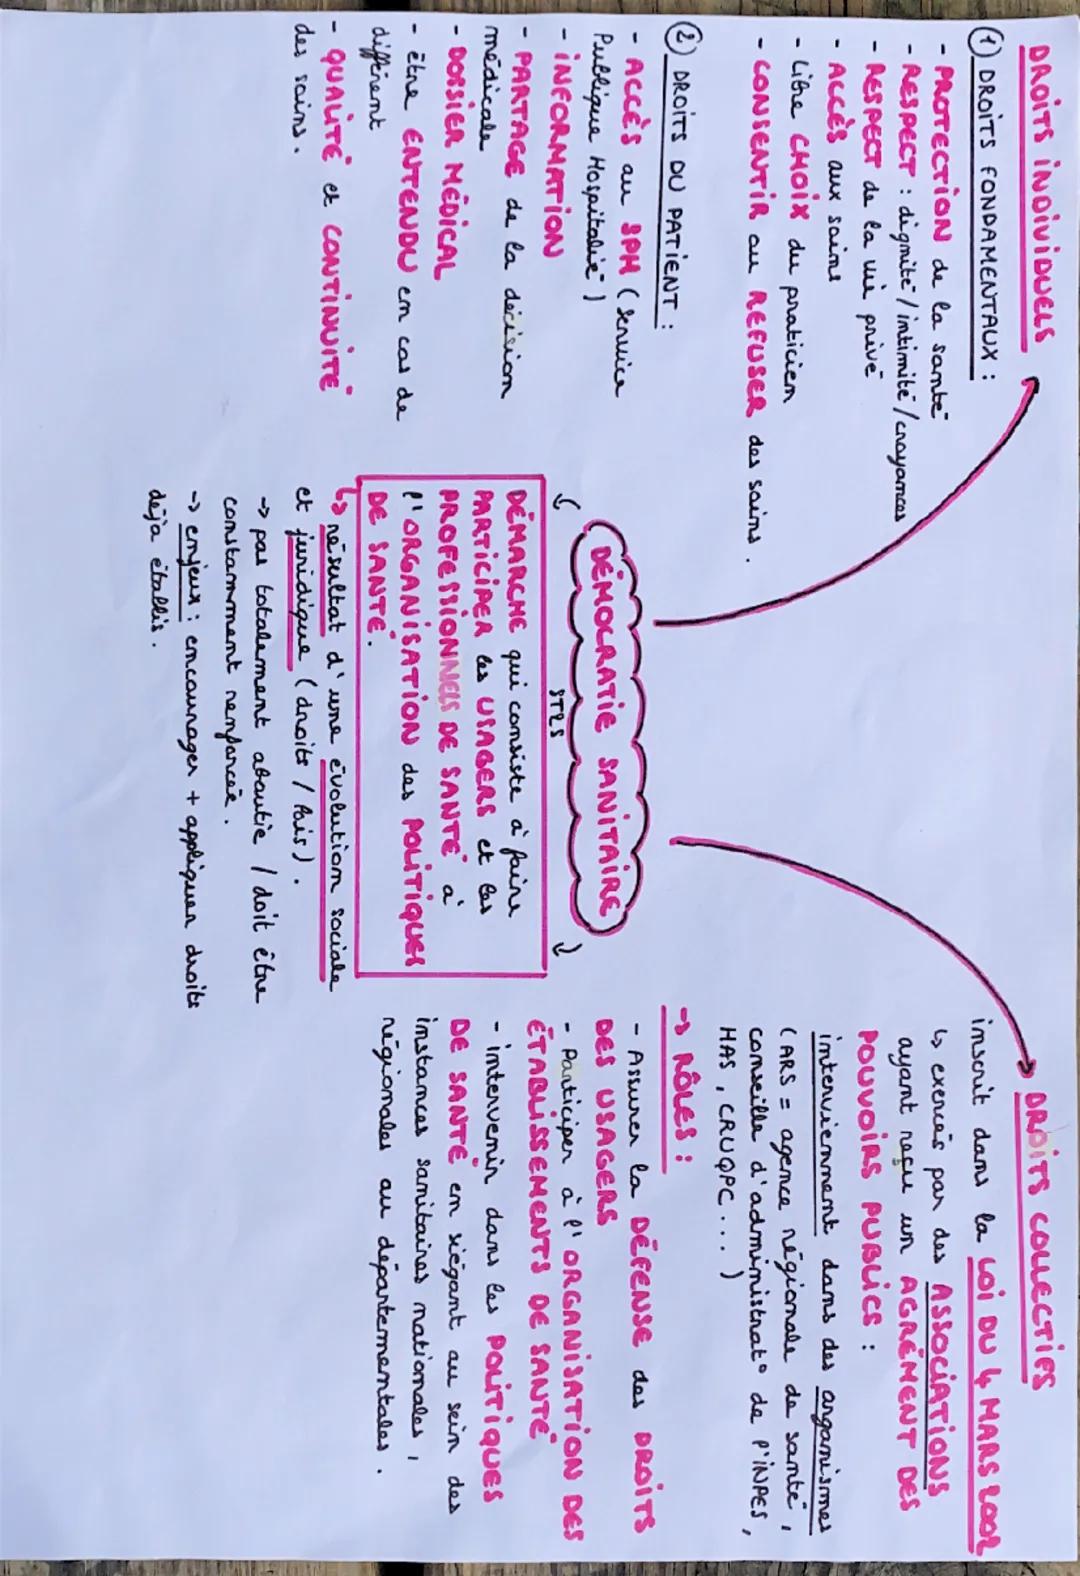 DROITS INDIVIDUELS
① DROITS FONDAMENTAUX :
- PROTECTION de la santé
- RESPECT : dignité / intimité / croyances
- RESPECT de la vie privé
- ACCÈS aux soins
- Libre CHOIX du praticien
- CONSENTIR ou REFUSER des soins.
② DROITS DU PATIENT :
- ACCÈS au SPH (Service
Publique Hospitalié)
- INFORMATION
- PARTAGE de la décision
médicale
- DOSSIER MÉDICAL
- être ENTENDU en cas de
différent
- QUALITÉ et CONTINUITÉ
des soins.
DÉMOCRATIE SANITAIRE
ST2S
DÉMARCHE qui consiste à faire
PARTICIPER les USAGERS et les
PROFESSIONNELS DE SANTÉ à
l'ORGANISATION des POLITIQUES
DE SANTÉ.
↳ résultat d'une évolution sociale
et juridique (droits / lois).
→ pas totalement aboutie / doit être
constamment renforcée.
→ enjeux : encourager + appliquer droits
déjà établis.
DROITS COLLECTIFS
inscrit dans la LOI DU 4 MARS 2002
↳ exercés par des ASSOCIATIONS
ayant reçu un AGRÉMENT DES
POUVOIRS PUBLICS :
interviennent dans des organismes
(ARS = agence régionale de santé,
conseille d'administrat° de l'INPES,
HAS, CRUQPC...)
→ RÔLES :
- Assurer la DÉFENSE des DROITS
DES USAGERS
- Participer à l'ORGANISATION DES
ÉTABLISSEMENTS DE SANTÉ
- intervenir dans les POLITIQUES
DE SANTÉ en siégant au sein des
instances sanitaires nationales,
régionales ou départementales.